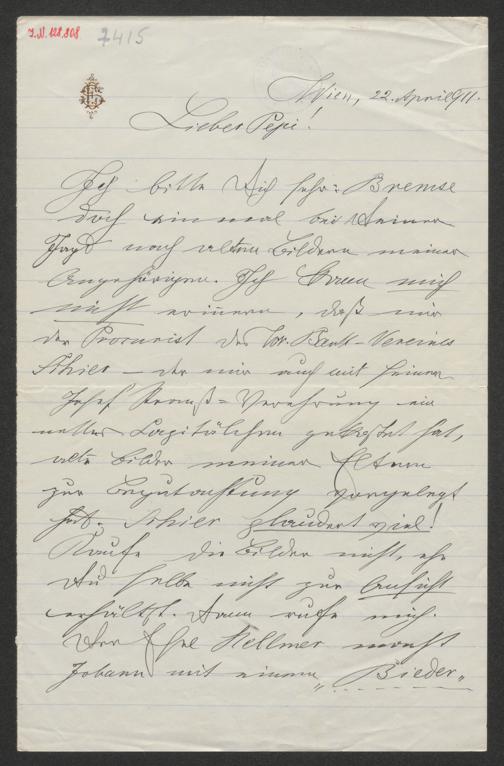 I.N. 128.808
7415
Wien, 22. April 911.
Lieber Pepi!
Ich bitte Dich sehr: Bremse
doch einmal bei Deiner
Jagd nach alten Bildern meiner
Angehörigen. Ich kann mich
nicht erinnern, daß mir
der Procurist des Wr. Bank-Vereines
Schier – der mir auch mit seiner
Josef Strauß-Verehrung ein
nettes Capitälchen gekostet hat,
alte Bilder meiner Eltern
zur Begutachtung vorgelegt
hat. Schier plaudert viel!
Kaufe die Bilder nicht, ehe
Du selbe nicht zur Ansicht
erhältst. Dann rufe mich.
Der Hellmer macht
Johann mit einem „Bieder„